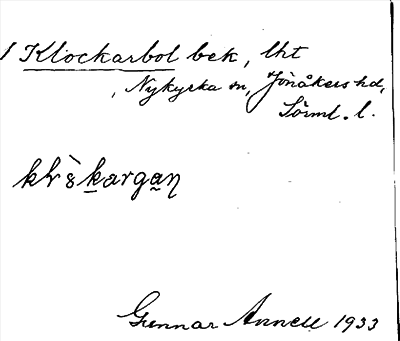 / Klockarbol bek, lht
, Nykyrka sn, Jönåkers hd,
Sörml. l.
Gunnar Annell 1933